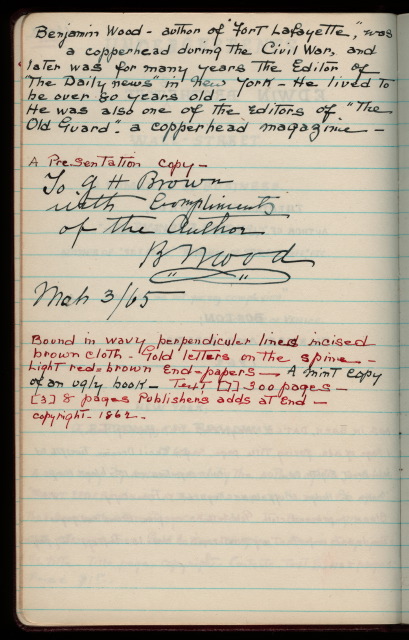 Benjamin Wood - author of "Fort Lafayette," was
a copperhead during the Civil War, and
later was for many years the Editor of
"The Daily news" in New York - He lived to
be over 80 years old -
He was also one of the Editors of "The
Old Guard" - a copperhead magazine -
A Presentation copy -
To G H Brown
with Compliments
of the Author
B Wood
Mch 3/65
Bound in wavy perpendicular lines incised
brown cloth - Gold letters on the spine -
Light red=brown End=papers - A mint copy
of an ugly book - Text [7]-300 pages -
[3] 8 pages Publishers adds at End -
copyright - 1862 -